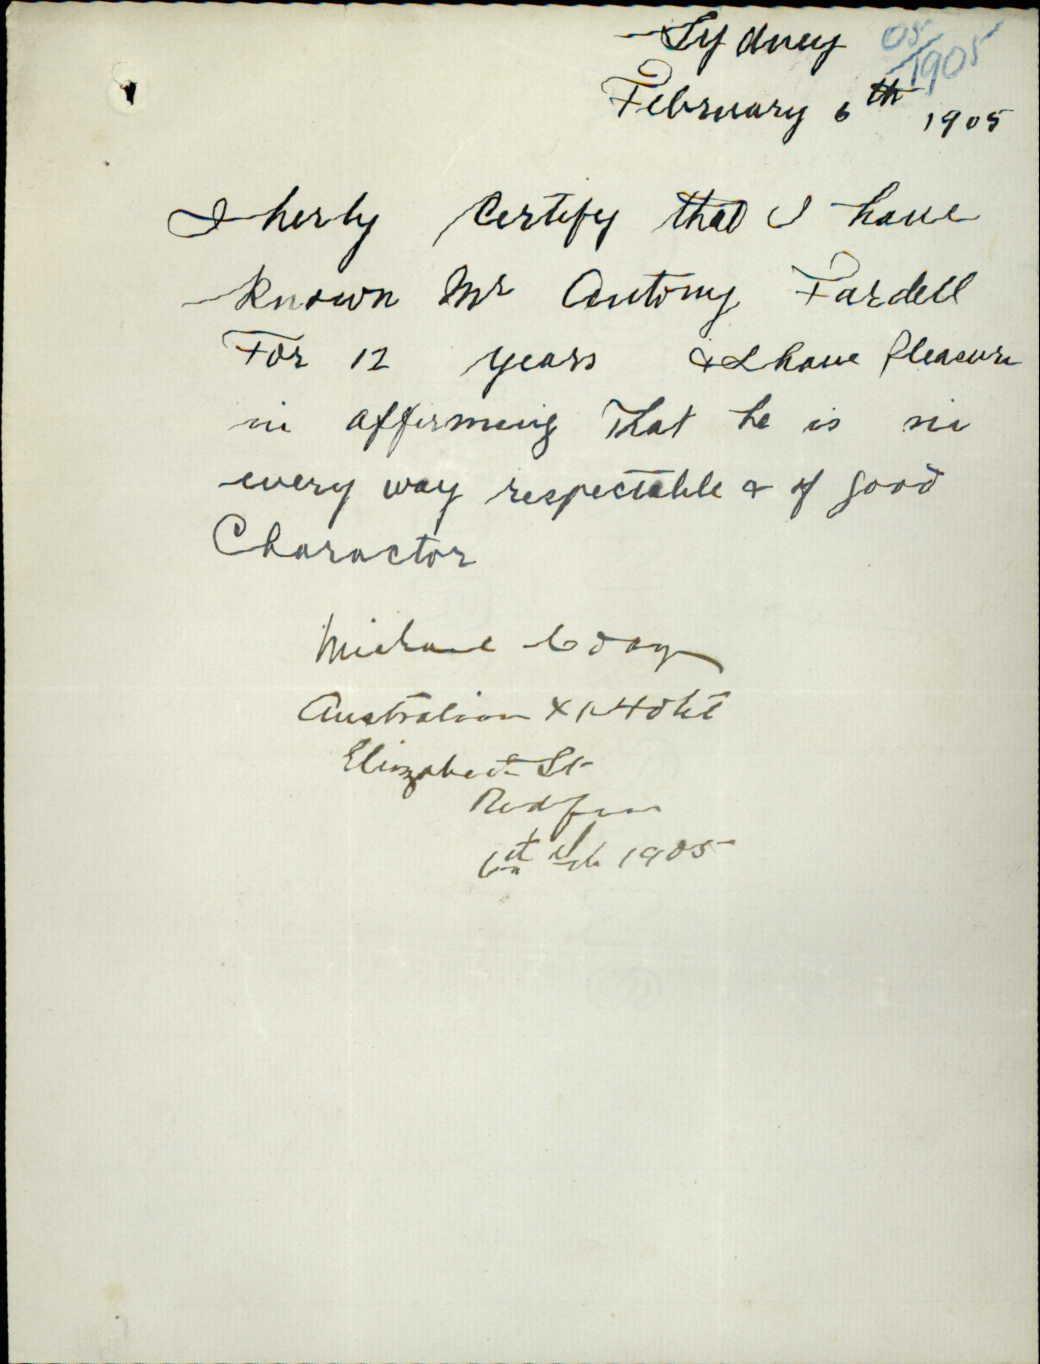 Sydney 05/1905
February 6th 1905
I herby Certify that I have
known Mr Antony Fardell
For 12 years & I have pleasure
in affirming That he is in
every way respectable & of good
Charactor
Michael
Australian Hotel
Elizabeth St
Redfern
6th Feb 1905